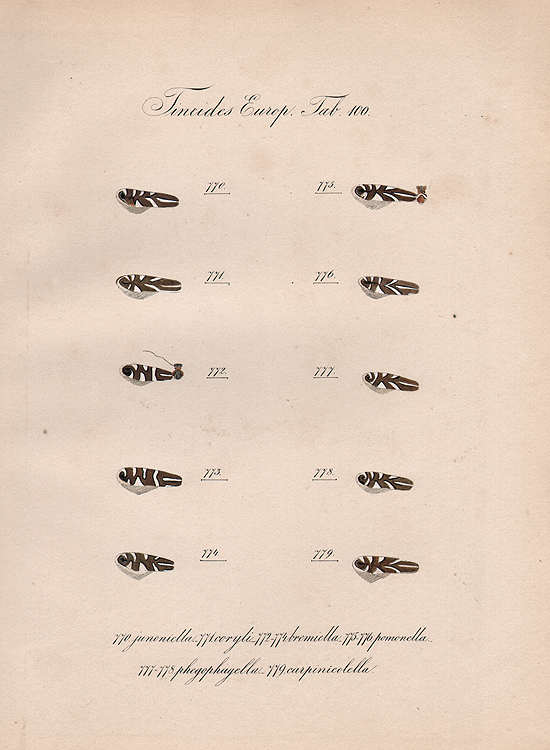 Tineides Europ. Tab. 100.
770.
775.
771.
776.
772.
777.
773.
778.
774.
779.
770 junoniella._771 coryli._772-774 bremiella._775-776 pomonella._
777-778 phegophagella._779 carpinicolella.